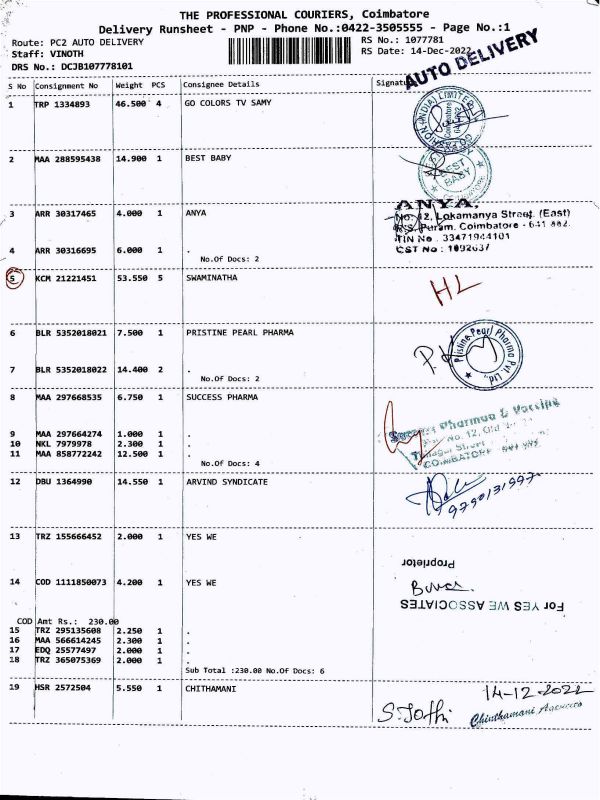 THE PROFESSIONAL COURIERS, Coimbatore
Delivery Runsheet - PNP - Phone No.:0422-3505555 - Page No.:1
Route: PC2 AUTO DELIVERY
RS No.: 1077781
Staff: VINOTH
RS Date: 14-Dec-2022
DRS No.: DCJB107778101
AUTO DELIVERY
S No Consignment No Weight PCS Consignee Details Signature
1 TRP 1334893 46.500 4 GO COLORS TV SAMY
2 MAA 288595438 14.900 1 BEST BABY
BEST BABY
3 ARR 30317465 4.000 1 ANYA
ANYA,
No. 12, Lokamanya Street, (East)
R.S. Puram, Coimbatore - 641 002.
TIN No : 33471944101
CST No : 1092637
4 ARR 30316695 6.000 1 .
No.Of Docs: 2
5 KCM 21221451 53.550 5 SWAMINATHA
HL
6 BLR 5352018021 7.500 1 PRISTINE PEARL PHARMA
Pristine Pearl Pharma Pvt. Ltd.
7 BLR 5352018022 14.400 2 .
No.Of Docs: 2
8 MAA 297668535 6.750 1 SUCCESS PHARMA
Success Pharmaa & Vaccine
No. 12, Old
COIMBATORE
9 MAA 297664274 1.000 1 .
10 NKL 7979978 2.300 1 .
11 MAA 858772242 12.500 1 .
No.Of Docs: 4
12 DBU 1364990 14.550 1 ARVIND SYNDICATE
13 TRZ 155666452 2.000 1 YES WE
Proprietor
14 COD 1111850073 4.200 1 YES WE
For YES WE ASSOCIATES
COD Amt Rs.: 230.00
15 TRZ 295135608 2.250 1 .
16 MAA 566614245 2.300 1 .
17 EDQ 25577497 2.000 1 .
18 TRZ 365075369 2.000 1 .
Sub Total :230.00 No.Of Docs: 6
19 HSR 2572504 5.550 1 CHITHAMANI
14-12-2022
S. Jothi
Chinthamani Agencies